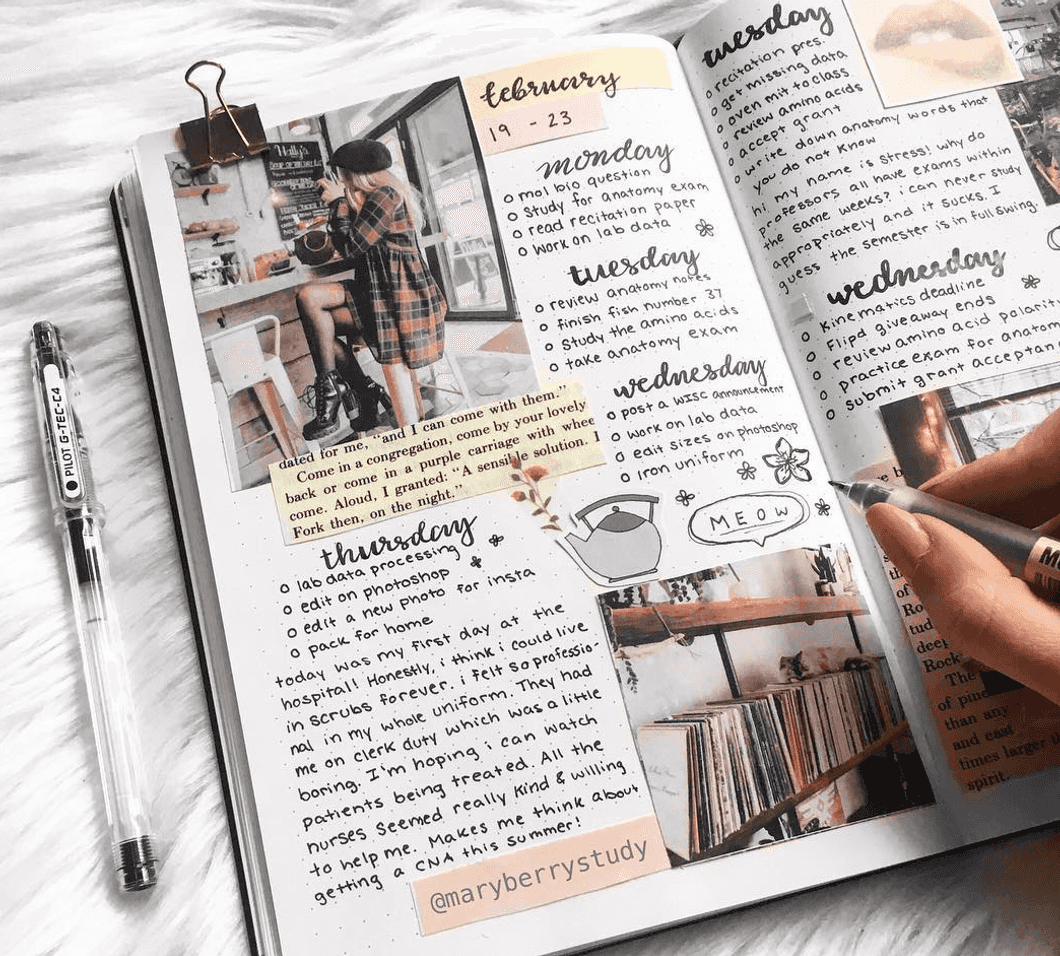 february
19 - 23
monday
o mol bio question
o study for anatomy exam
o read recitation paper
o work on lab data
tuesday
o review anatomy notes
o finish fish number 37
o study the amino acids
o take anatomy exam
wednesday
o post a WISC announcement
o work on lab data
o edit sizes on photoshop
o iron uniform
dated for me, "and I can come with them."
Come in a congregation, come by your lovely
back or come in a purple carriage with
come. Aloud, I granted: "A sensible solution. I
Fork then, on the night."
MEOW
thursday
o lab data processing
o edit on photoshop
o edit a new photo for insta
o pack for home
today was my first day at the
hospital! Honestly, i think i could live
in scrubs forever. i felt so professio-
nal in my whole uniform. They had
me on clerk duty which was a little
boring. I'm hoping i can watch
patients being treated. All the
nurses seemed really kind & willing
to help me. Makes me think about
getting a CNA this summer!
@maryberrystudy
PILOT G-TEC-C4
tuesday
o recitation pres.
o get missing data
o oven mit to class
o review amino acids
o accept grant
o write down anatomy words that
you do not know
hi my name is stress! why do
professors all have exams within
the same weeks? i can never study
appropriately and it sucks. I
guess the semester is in full swing.
wednesday
o kinematics deadline
o Flipd giveaway ends
o review amino acid
o practice exam for
o submit grant
Rock
The
of pine
than any
and east
times larger
spirit.